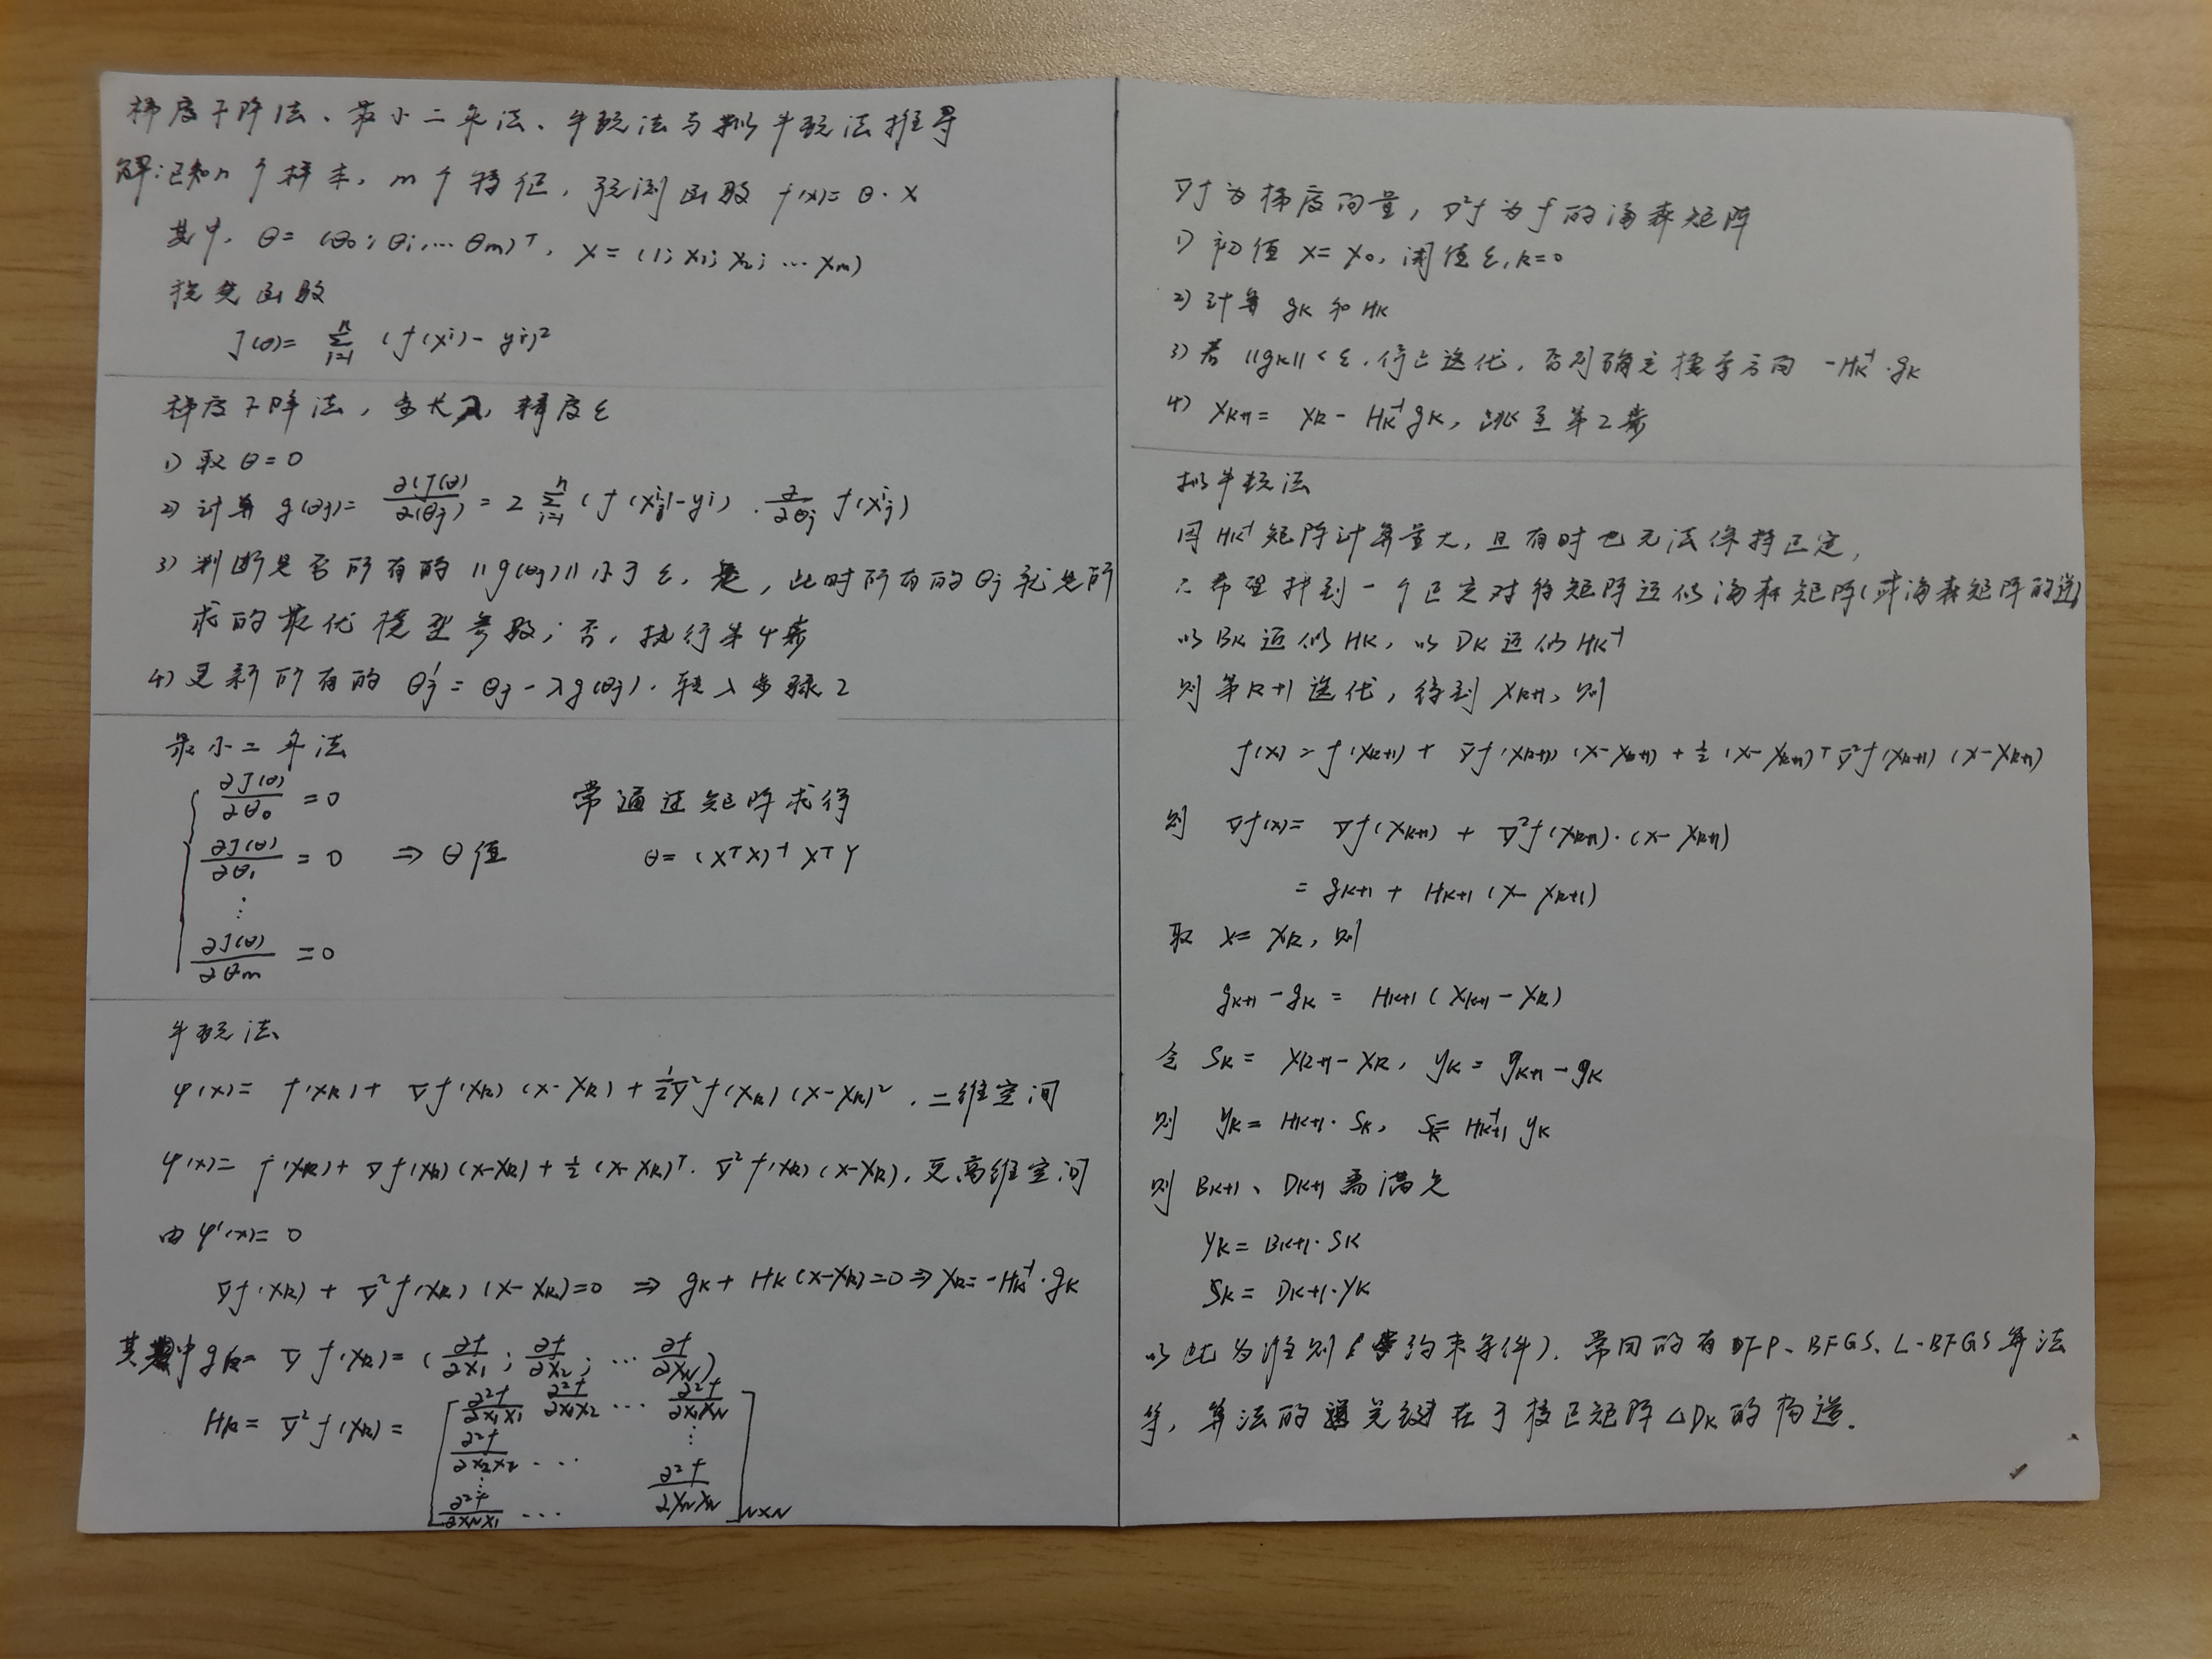 梯度下降法、最小二乘法、牛顿法与拟牛顿法推导
解:已知n个样本,m个特征,预测函数 f(x)=θ·X
其中,θ=(θ0;θ1,…θm)ᵀ,X=(1;X1;X2;…Xm)
损失函数
J(θ)= Σ_{i=1}^{n} (f(xⁱ)-yⁱ)²
梯度下降法,步长λ,精度ε
1) 取θ=0
2) 计算 g(θj)= ∂(J(θ))/∂(θj) = 2 Σ_{i=1}^{n} (f(xⁱj)-yⁱ)·∂/∂θj f(xⁱj)
3) 判断是否所有的||g(θj)||小于ε,是,此时所有的θj就是所
求的最优模型参数;否,执行第4步
4) 更新所有的 θj′=θj-λg(θj).转入步骤2
最小二乘法
∂J(θ)/∂θ0 =0 常通过矩阵求得
∂J(θ)/∂θ1 =0 ⇒ θ值 θ=(XᵀX)⁻¹XᵀY
⋮
∂J(θ)/∂θm =0
牛顿法
φ(x)= f(XR)+ ∇f(XR)(X-XR)+½∇²f(XR)(X-XR)²,二维空间
φ(x)= f(XR)+∇f(XR)(X-XR)+½(X-XR)ᵀ·∇²f(XR)(X-XR),更高维空间
由φ′(x)=0
∇f(XR)+∇²f(XR)(X-XR)=0 ⇒ gK+HK(X-XR)=0⇒XR=-HK⁻¹·gK
其中gR= ∇f(XR)=(∂f/∂X1;∂f/∂X2;…∂f/∂XN)
HR=∇²f(XR)= [∂²f/∂X1X1 ∂²f/∂X1X2 … ∂²f/∂X1XN
∂²f/∂X2X2 … ⋮
⋮
∂²f/∂XNX1 … ∂²f/∂XNXN]N×N
∇f为梯度向量,∇²f为f的海森矩阵
1) 初值 X=X0,阈值ε,k=0
2) 计算 gK和HK
3) 若||gK||<ε,停止迭代,否则确定搜索方向 -HK⁻¹·gK
4) XK+1= XR-HK⁻¹gK,跳至第2步
拟牛顿法
因HK⁻¹矩阵计算量大,且有时也无法保持正定,
∴希望找到一个正定对称矩阵近似海森矩阵(或海森矩阵的逆)
以BK近似HK,以DK近似HK⁻¹
则第k+1迭代,得到XR+1,则
f(x)=f(XK+1)+ ∇f(XR+1)(X-XR+1)+½(X-XK+1)ᵀ∇²f(XR+1)(X-XR+1)
则 ∇f(x)= ∇f(XK+1)+ ∇²f(XR+1)·(X-XR+1)
= gK+1+ HK+1(X-XK+1)
取 X=XR,则
gK+1-gK= HK+1(XK+1-XR)
令 SK= XR+1-XR,yK=gK+1-gK
则 yK=HK+1·SK,SK=HK+1⁻¹yK
则 BK+1、DK+1需满足
yK=BK+1·SK
SK=DK+1·yK
以此为准则(约束条件).常用的有DFP、BFGS、L-BFGS算法
等,算法的关键在于校正矩阵△DK的构造.